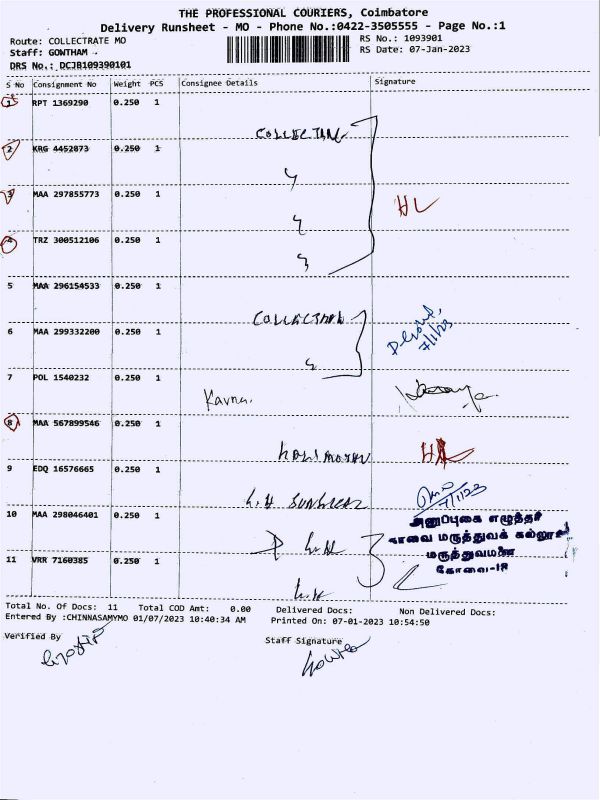 THE PROFESSIONAL COURIERS, Coimbatore
Delivery Runsheet - MO - Phone No.:0422-3505555 - Page No.:1
Route: COLLECTRATE MO
RS No.: 1093901
Staff: GOWTHAM
RS Date: 07-Jan-2023
DRS No.: DCJB109390101
S No Consignment No Weight PCS Consignee Details Signature
1 RPT 1369290 0.250 1
2 KRG 4452873 0.250 1
3 MAA 297855773 0.250 1
HL
4 TRZ 300512106 0.250 1
5 MAA 296154533 0.250 1
6 MAA 299332200 0.250 1
7/1/23
7 POL 1540232 0.250 1
Kavna.
8 MAA 567899546 0.250 1
9 EDQ 16576665 0.250 1
7/1/23
10 MAA 298046401 0.250 1
அனுப்புகை எழுத்தர்
கோவை மருத்துவக் கல்லூரி
மருத்துவமனை
கோவை-18
11 VRR 7160385 0.250 1
Total No. Of Docs: 11 Total COD Amt: 0.00 Delivered Docs: Non Delivered Docs:
Entered By :CHINNASAMYMO 01/07/2023 10:40:34 AM Printed On: 07-01-2023 10:54:50
Verified By Staff Signature